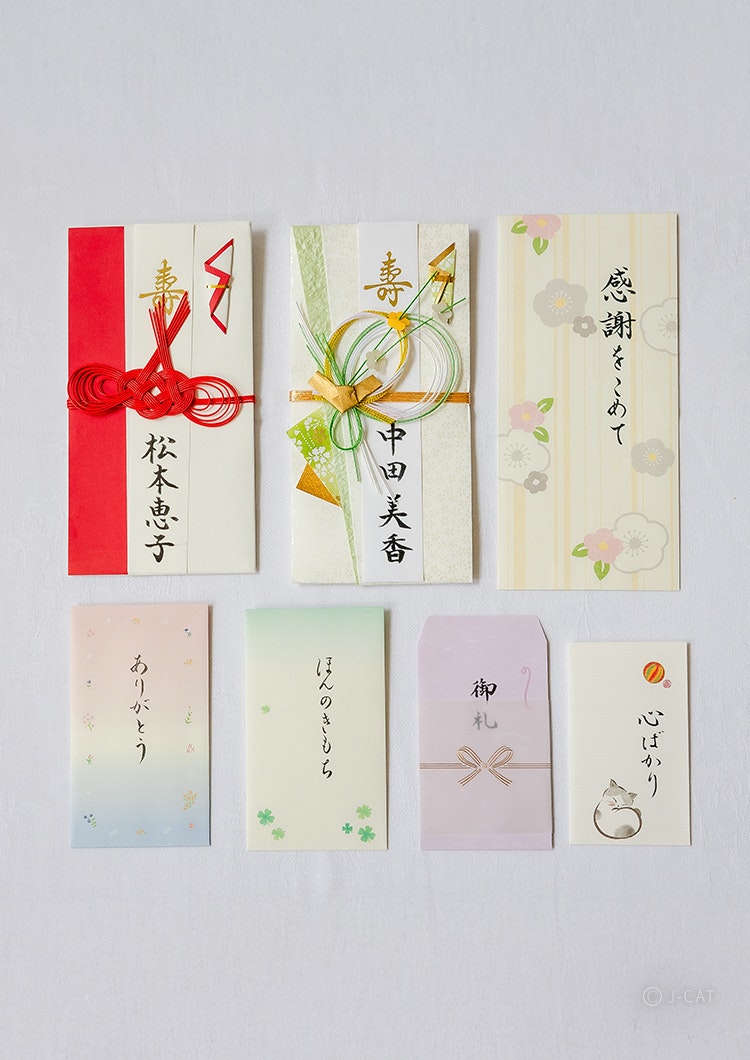 寿
松本恵子
寿
中田美香
感謝をこめて
ありがとう
ほんのきもち
御礼
心ばかり
© J-CAT